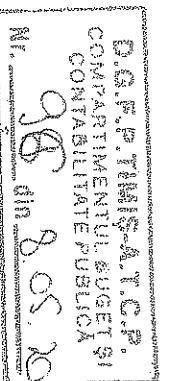 D.G.F.P. TIMIS-A.T.C.P.
COMPARTIMENTUL BUGET SI
CONTABILITATE PUBLICA
Nr. 98 din 8.05.20